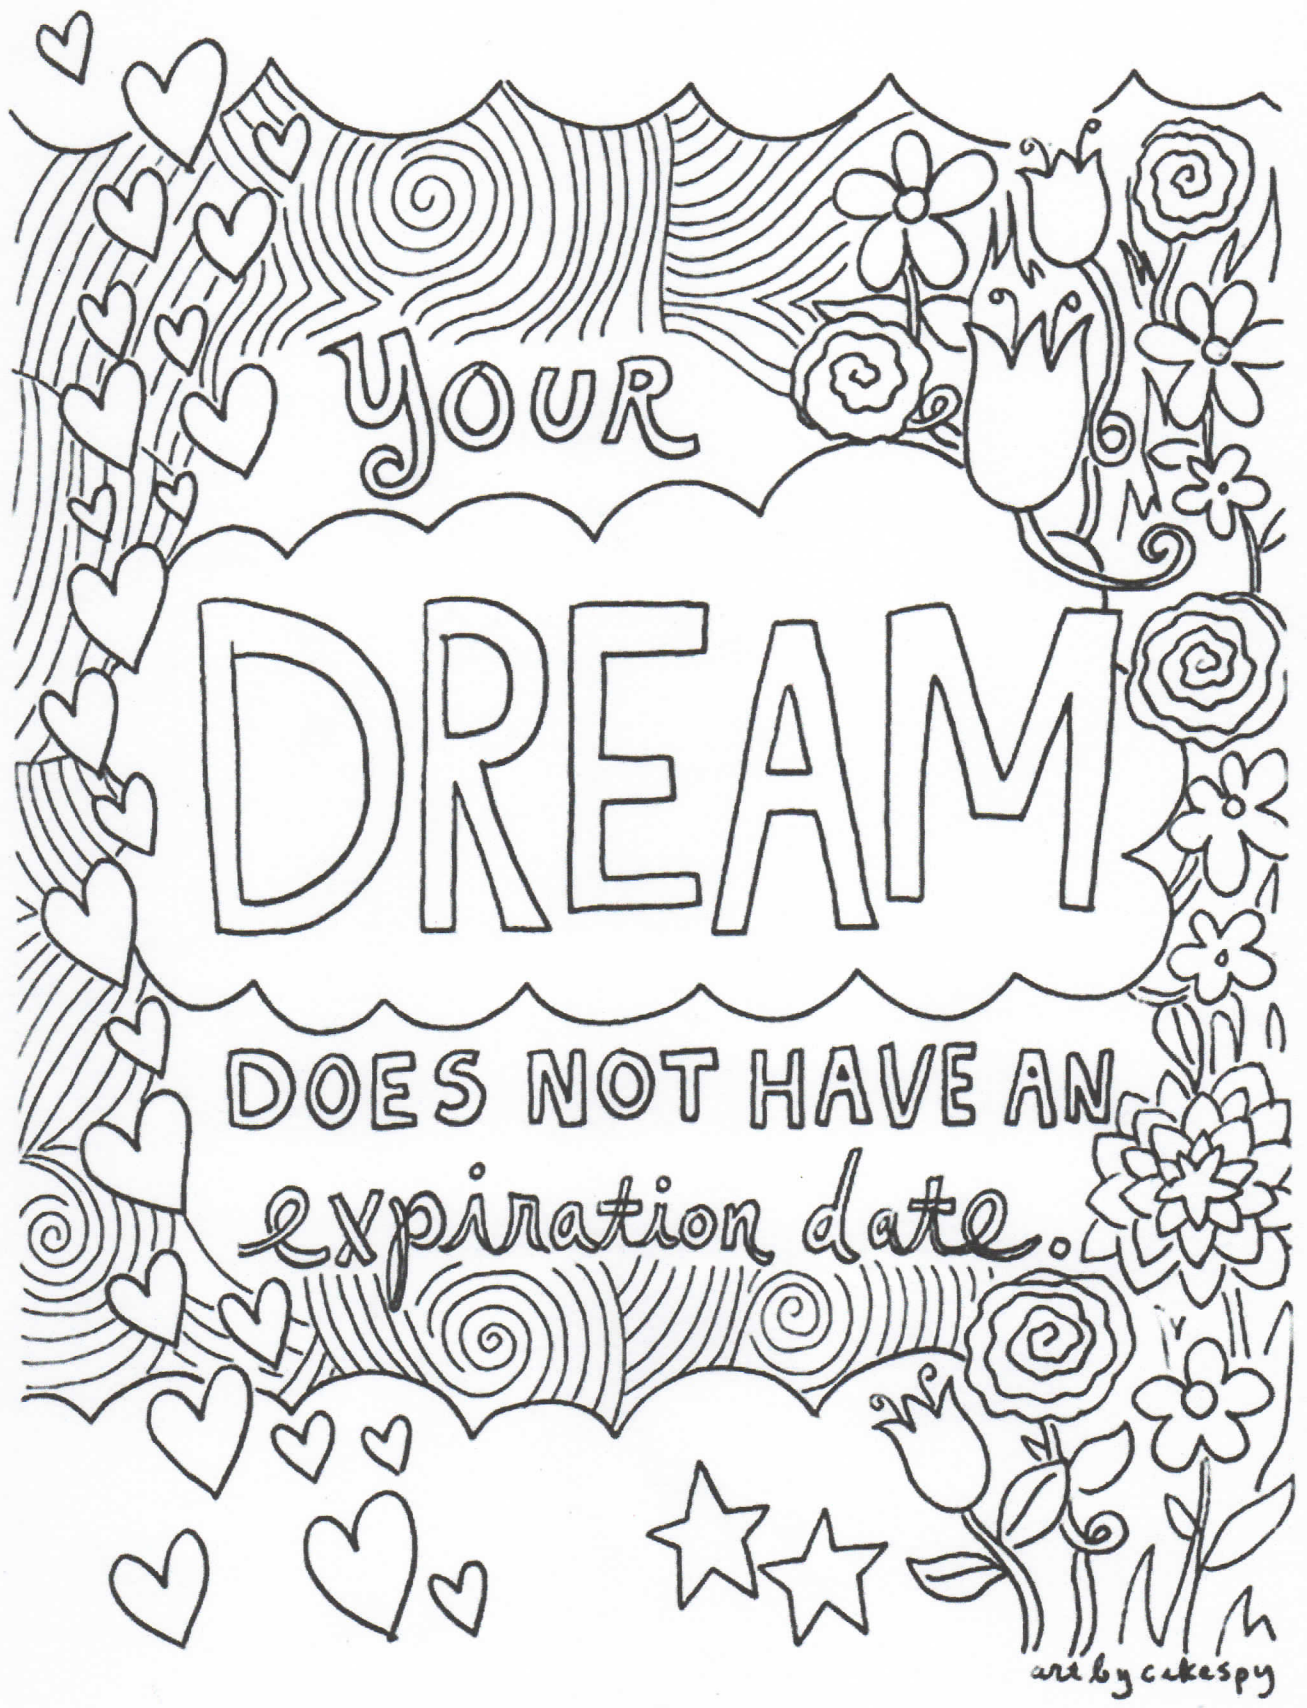 YOUR
DREAM
DOES NOT HAVE AN
expiration date.
art by cakespy